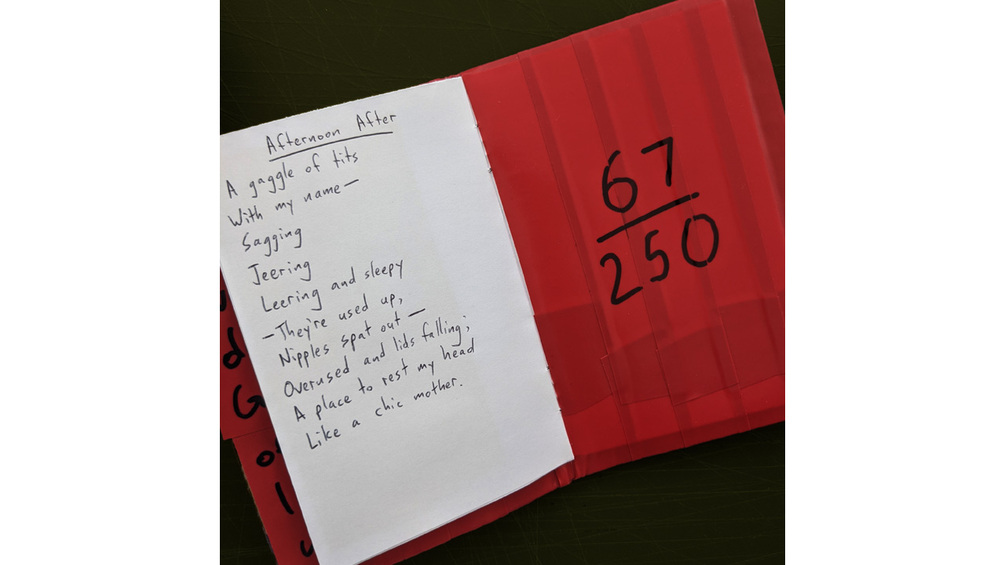 Afternoon After
A gaggle of tits
With my name—
Sagging
Jeering
Leering and sleepy
—They're used up,
Nipples spat out—
Overused and lids falling;
A place to rest my head
Like a chic mother.
67
250
d
G
o
l